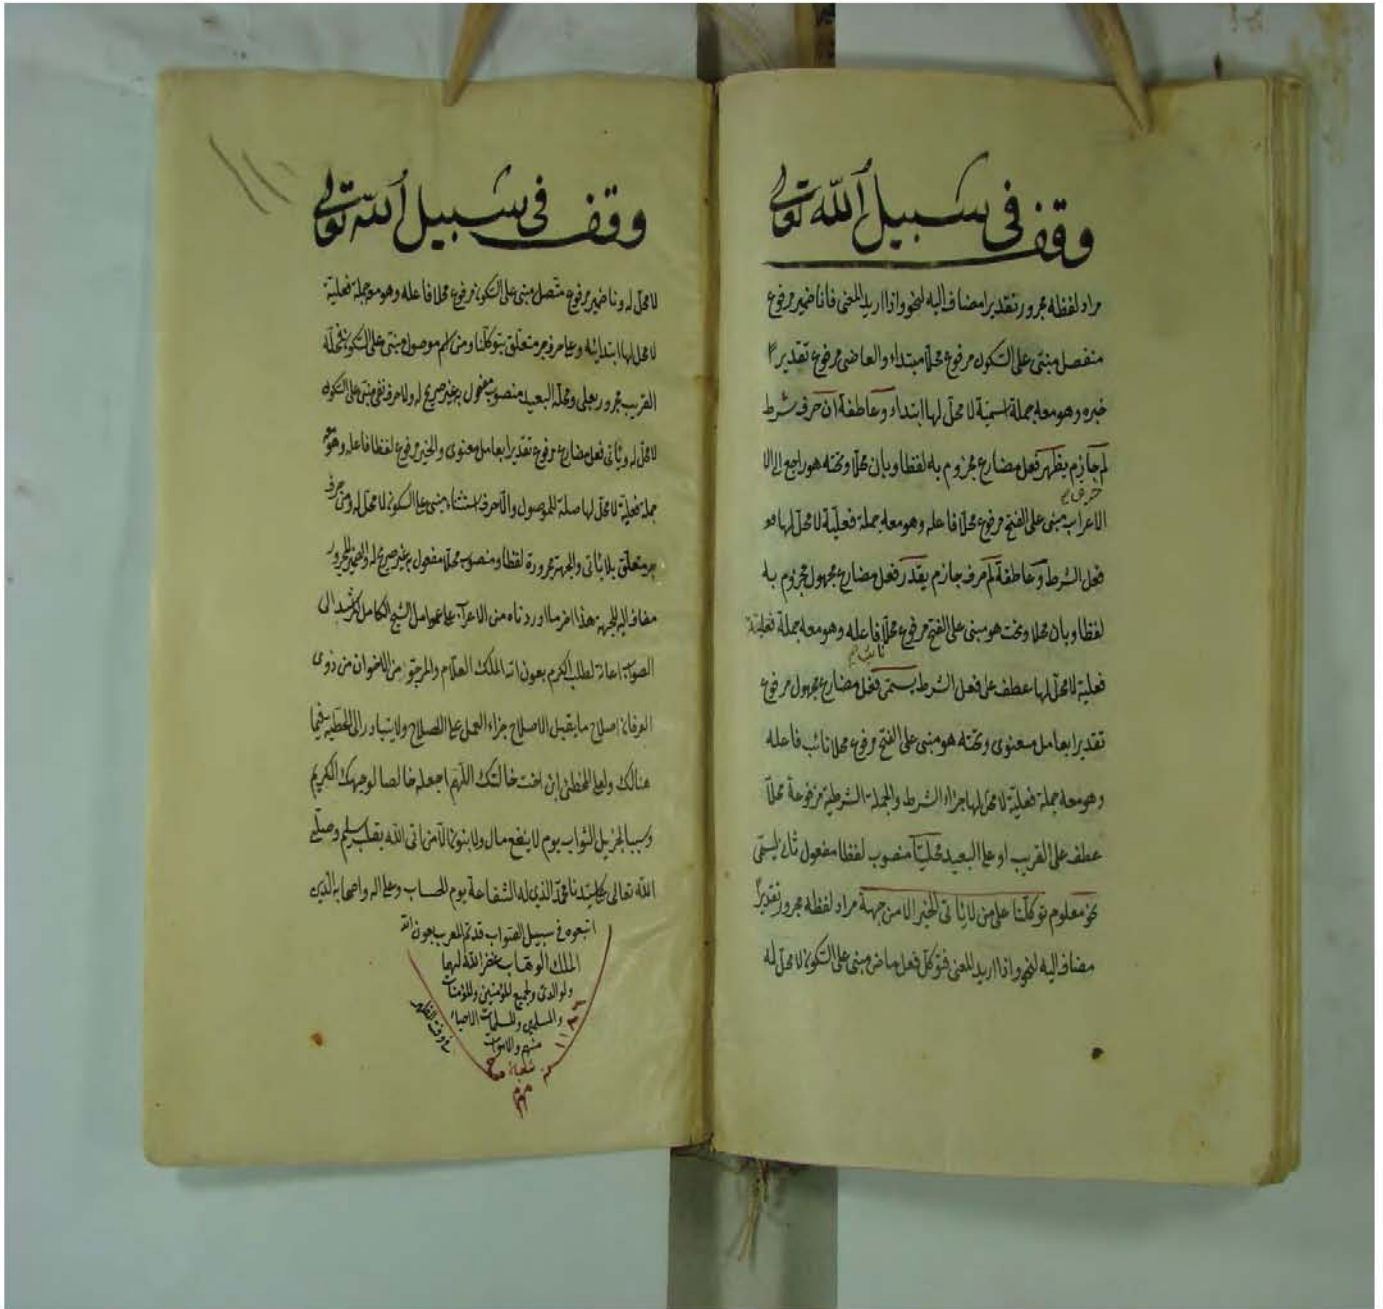 وقف في سبيل الله تعالى
مراد لفظه مجرور تقديرا مضاف اليه لنحو واذا اريد المعنى فانا ضمير مرفوع
منفصل مبنى على السكون مرفوع محلا مبتداء والعاصى مرفوع تقديرا
خبره وهو معه جملة اسمية لا محل لها ابتداء وعاطفة ان حرف شرط
لم جازم يظهر فعل مضارع مجزوم به لفظا وبان محلا وتحته هو راجع الى الا
الاعراب مبنى على الفتح مرفوع محلا فاعله وهو معه جملة فعلية لا محل لها
فعل الشرط وعاطفة لم حرف جازم يقدر فعل مضارع مجهول مجزوم به
لفظا وبان محلا وتحت هو مبنى على الفتح مرفوع محلا فاعله وهو معه جملة فعلية
نائب
فعلية لا محل لها عطف على فعل الشرط يسمى فعل مضارع مجهول مرفوع
تقديرا بعامل معنوى وتحته هو مبنى على الفتح مرفوع محلا نائب فاعله
وهو معه جملة فعلية لا محل لها جزاء الشرط والجملة الشرطية مرفوعة محلا
عطف على القريب او على البعيد محليا منصوب لفظا مفعول ثان ليسمى
نحو معلوم توكلنا على من لا ياتى الخير الا من جهة مراد لفظه مجرور تقديرا
مضاف اليه لنحو واذا اريد المعنى فتوكل فعل ماض مبنى على السكون لا محل له
وقف في سبيل الله تعالى
لا محل له ونا ضمير مرفوع متصل مبنى على السكون مرفوع محلا فاعله وهو معه جملة فعلية
لا محل لها ابتدائية وعلى حرف جر متعلق بتوكلنا ومن اسم موصول مبنى على السكون فمحله
القريب مجرور بعلى ومحله البعيد منصوب مفعول به غير صريح له ولا حرف نفى مبنى على السكون
لا محل له وياتى فعل مضارع مرفوع تقديرا بعامل معنوى والخير مرفوع لفظا فاعله وهو معه
جملة فعلية لا محل لها صلة للموصول والا حرف استثناء مبنى على السكون لا محل له ومن حرف
جر متعلق بلا ياتى والجهة مجرورة لفظا ومنصوب محلا مفعول به غير صريح له والضمير المجرور
مضاف اليه للجهة هذا اخر ما اوردناه من الاعراب على عوامل الشيخ الكامل المرشد الى
الصواب اعانة لطلب الكرم بعون الله الملك العلام والمرجو من الاخوان من ذوى
العرفان اصلاح ما يقبل الاصلاح جزاء العمل على الصلاح ولا يتبادر الى الخطية فيما
هنالك ولعل المخطئ ابن اخت خالتك اللهم اجعله خالصا لوجهك الكريم
وسببا لجزيل الثواب يوم لا ينفع مال ولا بنون الا من اتى الله بقلب سليم وصلى
الله تعالى على سيدنا محمد الذي له الشفاعة يوم الحساب وعلى اله واصحابه الذين
اتبعوه في سبيل الصواب قد تم المعرب بعون الله
الملك الوهاب غفر الله لهما
ولوالدى ولجميع المؤمنين والمؤمنات
والمسلمين والمسلمات الاحياء
منهم والاموات
في وقت الظهر